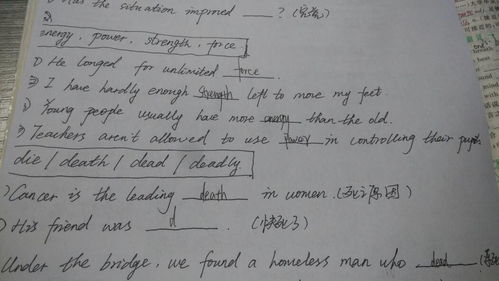 the situation improved ___? (完善)
energy, power, strength, force
① He longed for unlimited force.
I have hardly enough strength left to move my feet.
Young people usually have more energy than the old.
Teachers aren't allowed to use power in controlling their pupils
die / death / dead / deadly.
Cancer is the leading death in women. (死亡原因)
His friend was d. (快死了)
Under the bridge, we found a homeless man who dead